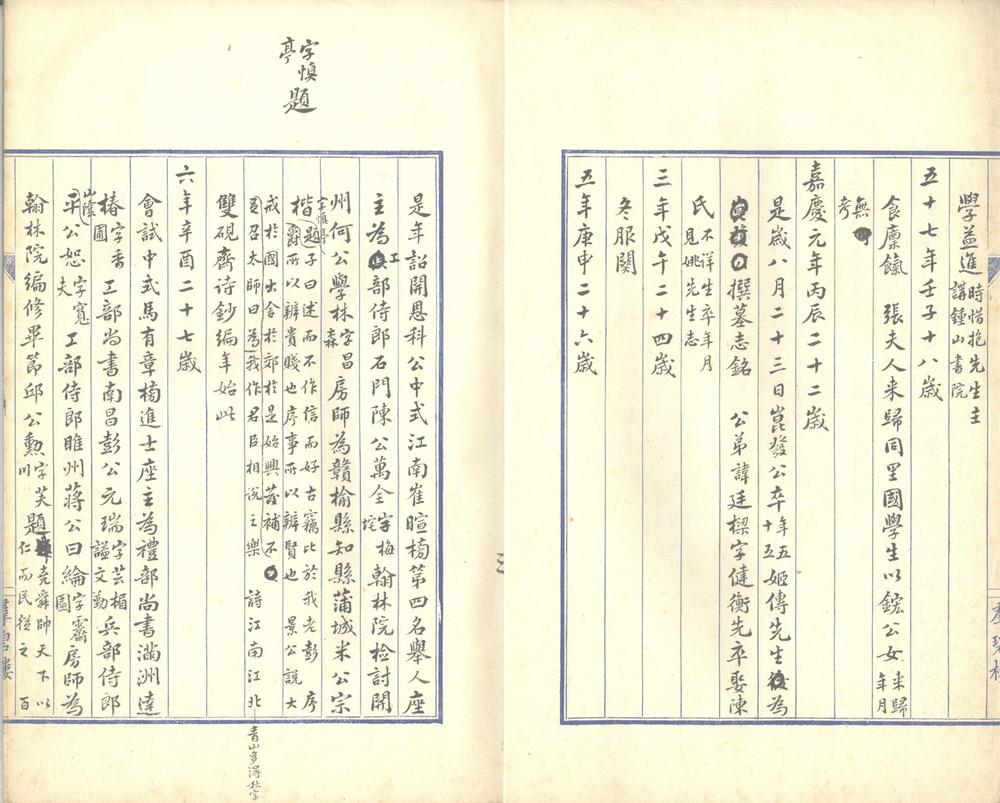 學益進時惜抱先生主講鍾山書院
五十七年壬子十八歲
食廩餼 張夫人來歸同里國學生以鋐公女來歸年月
無考
嘉慶元年丙辰二十二歲
是歲八月二十三日崑發公卒年五十五姬傳先生為
撰墓志銘 公弟諱廷樑字健衡先卒娶陳
氏不詳生卒年月見姚先生志
三年戊午二十四歲
冬服闋
五年庚申二十六歲
字慎
亭
題
是年詔開恩科公中式江南崔暄榜第四名舉人座
主為工部侍郎石門陳公萬全字梅垞翰林院檢討開
州何公學林字昌森房師為贛榆縣知縣蒲城米公宗
楷字慎亭題子曰述而不作信而好古竊比於我老彭 序爵所以辨貴賤也序事所以辨賢也 景公說大
戒於國出舍於郊於是始興發補不召太師曰為我作君臣相說之樂 詩江南江北
青山多得秋字
雙硯齋詩鈔編年始此
六年辛酉二十七歲
會試中式馬有章榜進士座主為禮部尚書滿洲達
椿字香圃工部尚書南昌彭公元瑞字芸楣謚文勤兵部侍郎
山陰平公恕字寬夫工部侍郎睢州蔣公曰綸字霽園房師為
翰林院編修畢節邱公勲字芙川題堯舜帥天下以仁而民從之 百